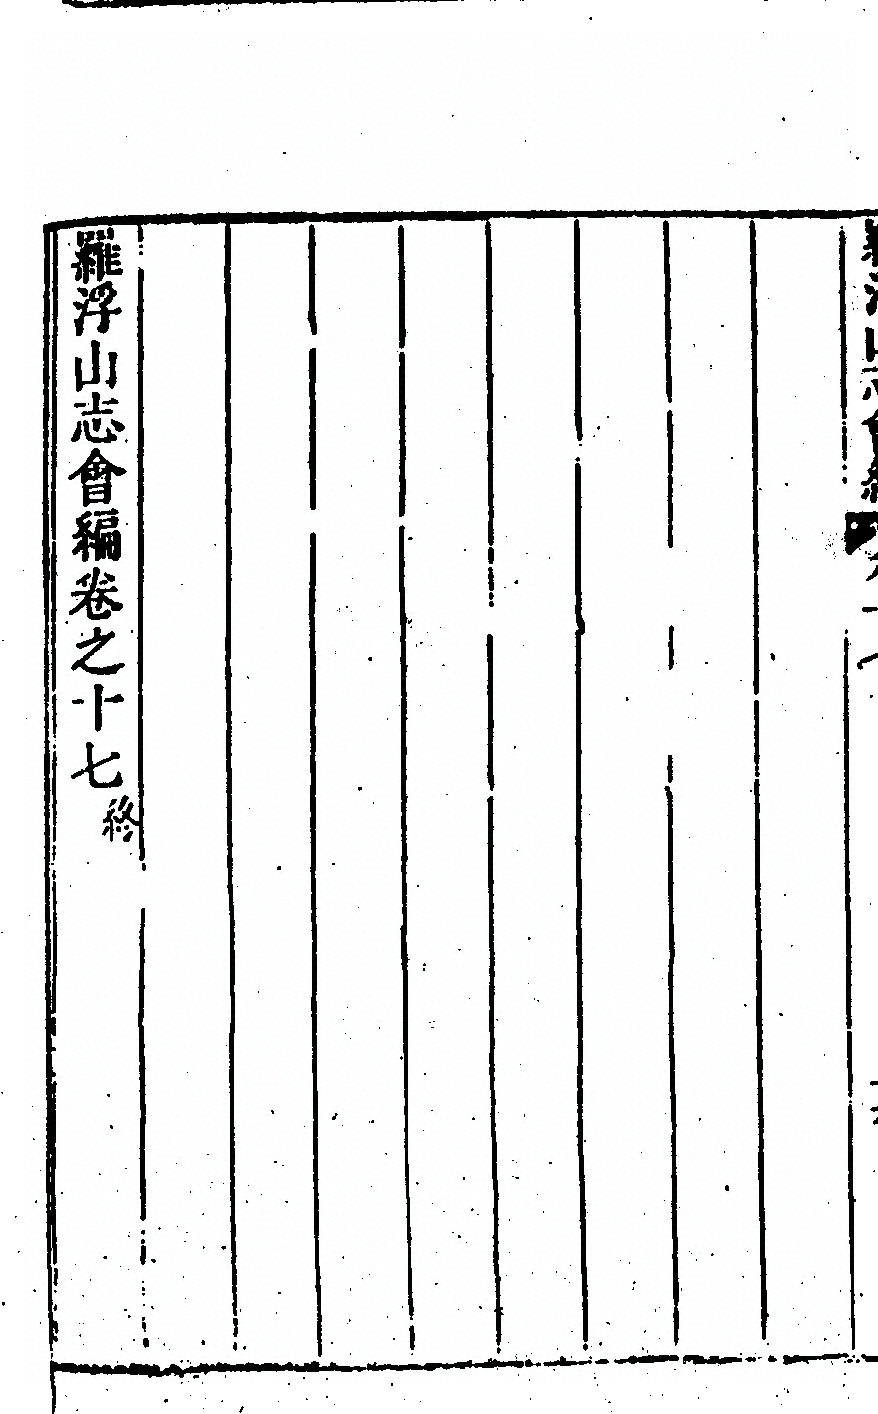 羅浮山志會編卷之十七終